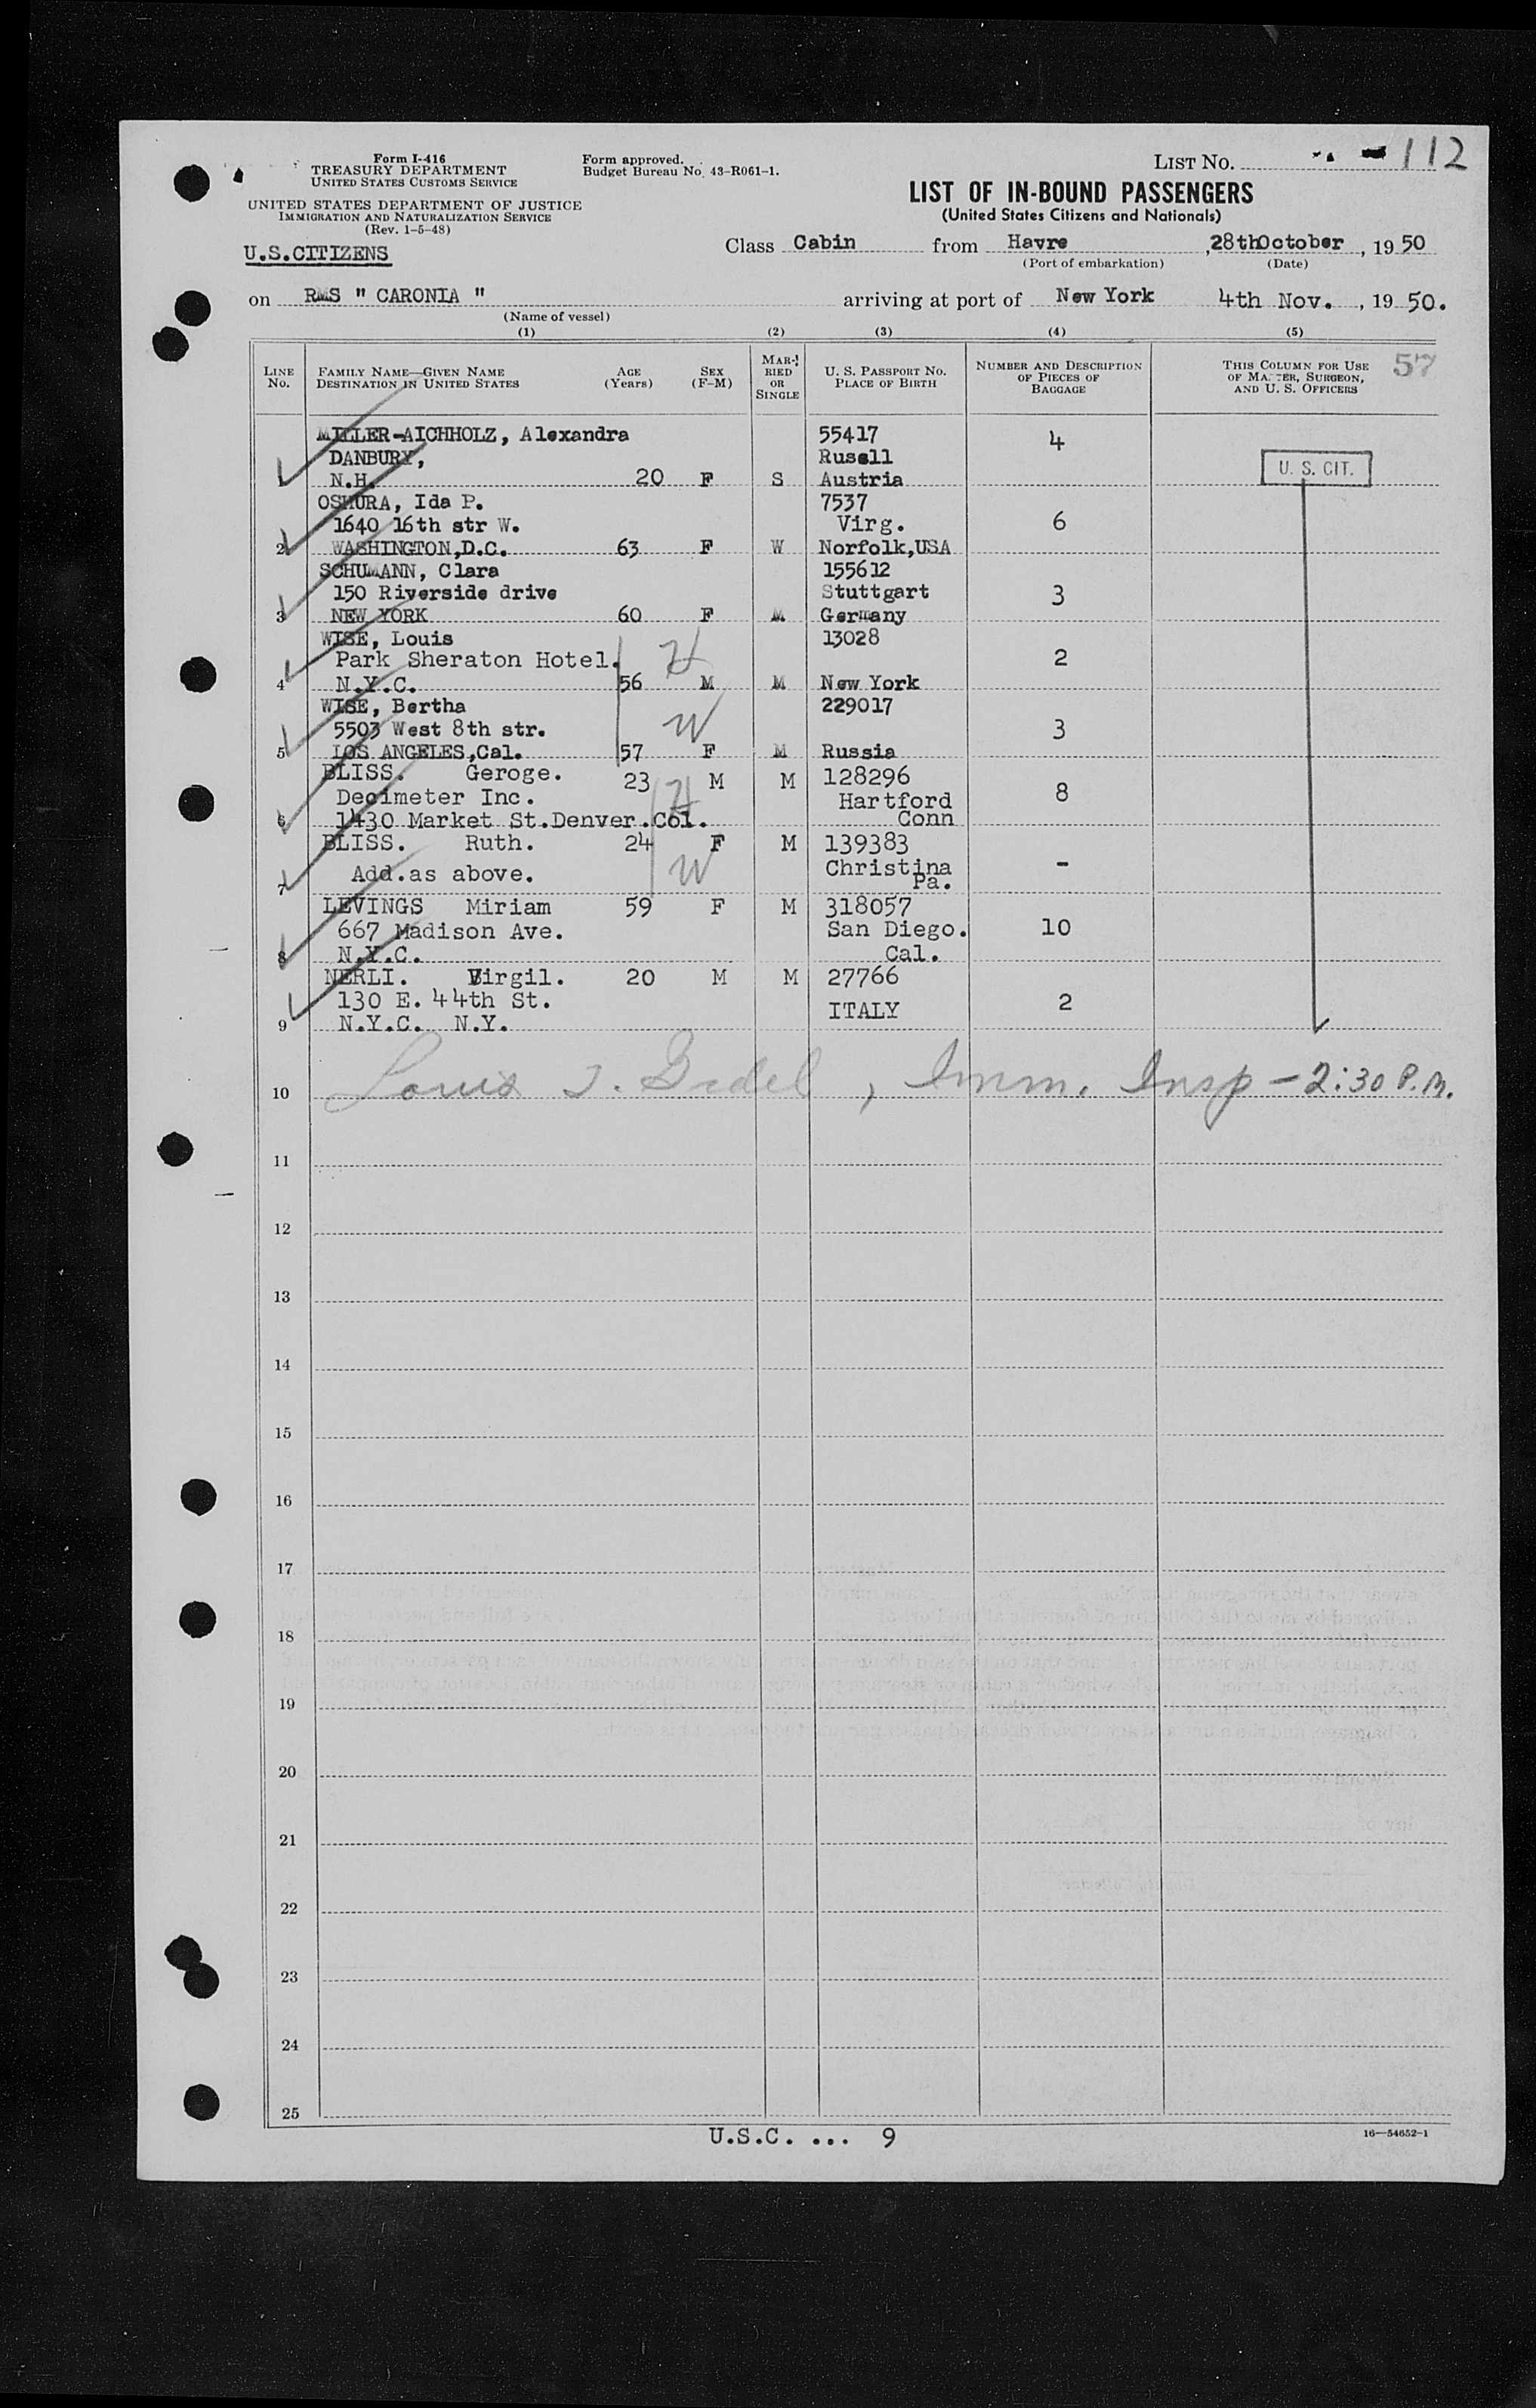 Form I-416
TREASURY DEPARTMENT
UNITED STATES CUSTOMS SERVICE
UNITED STATES DEPARTMENT OF JUSTICE
IMMIGRATION AND NATURALIZATION SERVICE
(Rev. 1-5-48)
U.S.CITIZENS
Form approved.
Budget Bureau No. 43-R061-1.
LIST NO. 112
LIST OF IN-BOUND PASSENGERS
(United States Citizens and Nationals)
Class Cabin from Havre ,28thOctober , 19 50
(Port of embarkation) (Date)
on RMS " CARONIA " arriving at port of New York 4th Nov. , 19 50.
(Name of vessel)
(1) (2) (3) (4) (5)
LINE NO. FAMILY NAME—GIVEN NAME DESTINATION IN UNITED STATES AGE (YEARS) SEX (F-M) MAR-RIED OR SINGLE U. S. PASSPORT NO. PLACE OF BIRTH NUMBER AND DESCRIPTION OF PIECES OF BAGGAGE THIS COLUMN FOR USE OF MASTER, SURGEON, AND U. S. OFFICERS 57
MILLER-AICHHOLZ, Alexandra 55417 4
DANBURY, Rusell U. S. CIT.
1 N.H. 20 F S Austria
OSHURA, Ida P. 7537
1640 16th str W. Virg. 6
2 WASHINGTON,D.C. 63 F W Norfolk,USA
SCHUMANN, Clara 155612
150 Riverside drive Stuttgart 3
3 NEW YORK 60 F M Germany
WISE, Louis H 13028
Park Sheraton Hotel. 2
4 N.Y.C. 56 M M New York
WISE, Bertha W 229017
5503 West 8th str. 3
5 LOS ANGELES,Cal. 57 F M Russia
BLISS. Geroge. 23 M M 128296
Decimeter Inc. H Hartford 8
6 1430 Market St.Denver.Col. Conn
BLISS. Ruth. 24 F M 139383
7 Add.as above. W Christina Pa. -
LEVINGS Miriam 59 F M 318057
667 Madison Ave. San Diego. 10
8 N.Y.C. Cal.
NERLI. Virgil. 20 M M 27766
130 E. 44th St. ITALY 2
9 N.Y.C. N.Y.
10 Louis , Imm. Insp - 2:30 P.M.
11
12
13
14
15
16
17
18
19
20
21
22
23
24
25
U.S.C. ... 9
16—54652-1